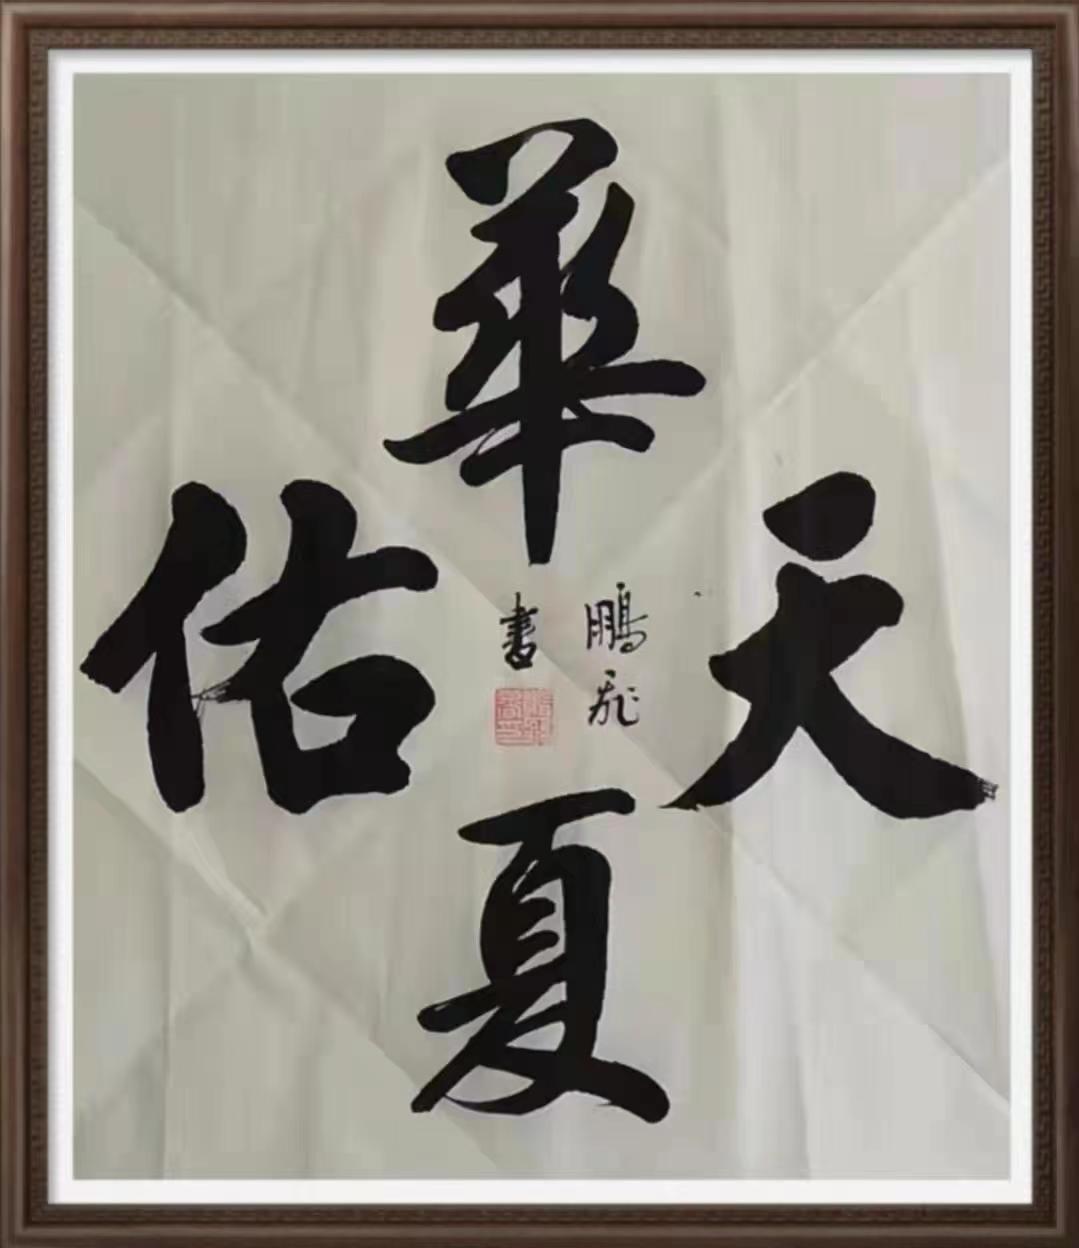 天佑
華夏
鵬飛
書